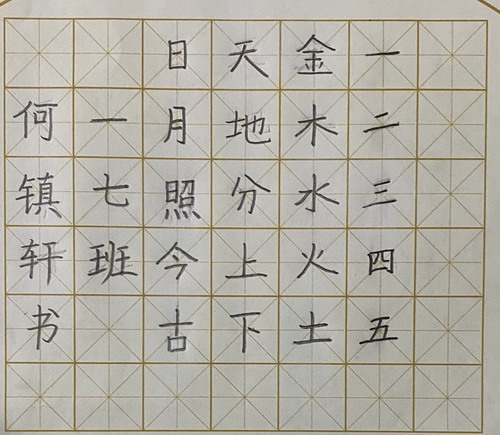 一二三四五
金木水火土
天地分上下
日月照今古
一七班
何镇轩书